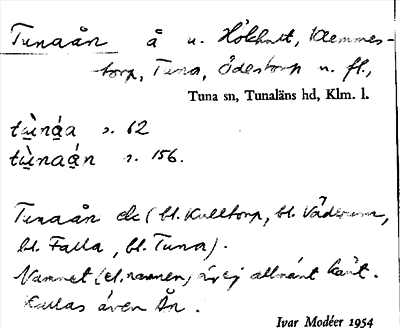 Tunaån å u. Hökhult, Klemmes-
torp, Tuna, Ödestorp m. fl.,
Tuna sn, Tunaläns hd, Klm. l.
tùna s. 62
tùnaán s. 156.
Tunaån etc (bl. Kulltorp, bl. Väderum,
bl. Falla, bl. Tuna).
Namnet (el. namnen) är ej allmänt känt.
Kallas även Ån.
Ivar Modéer 1954